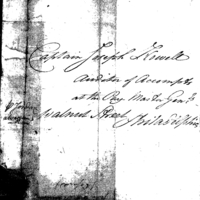 Captain Joseph Howell
Auditor of Accompts
at the Pay Master Gen.ls
Walnut Street Philadelphia